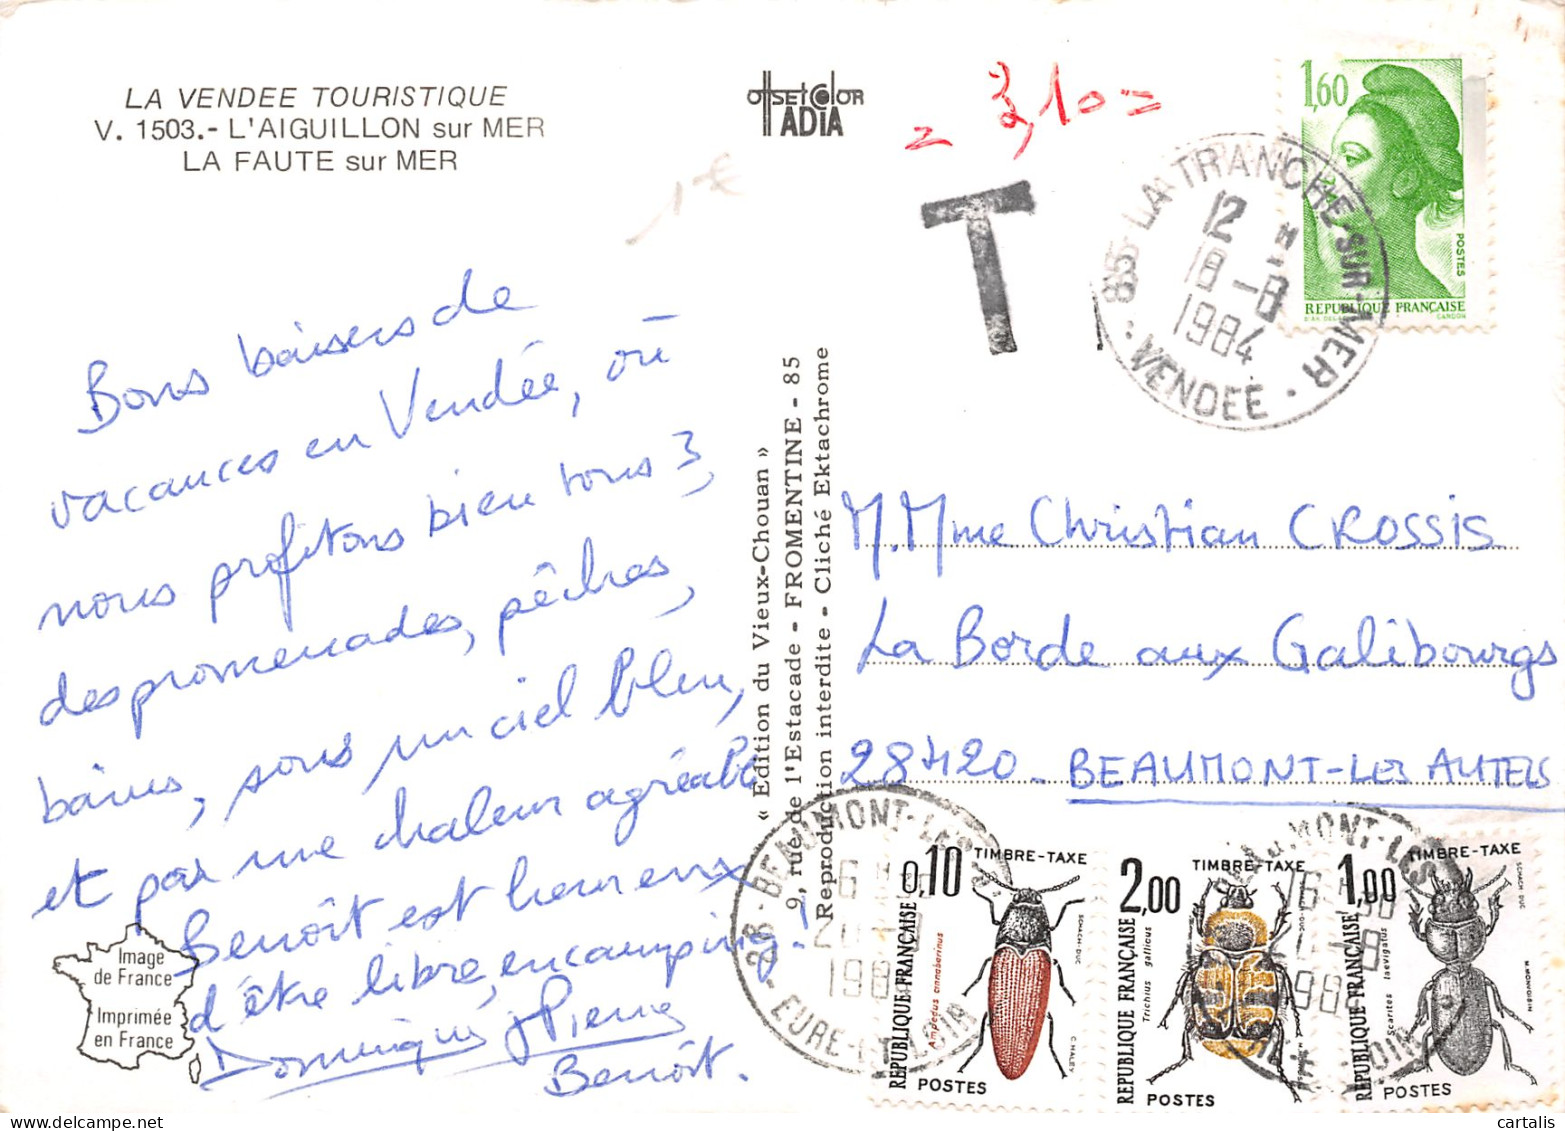 LA VENDEE TOURISTIQUE
V. 1503.- L'AIGUILLON sur MER
LA FAUTE sur MER
OffSEt COlOR
ADIA
= 3,10 =
1 €
T
85 LA TRANCHE-SUR-MER
12 H
18 -8
1984
VENDEE
1,60
POSTES
REPUBLIQUE FRANÇAISE
GANDON
Bons baisers de
vacances en Vendée, où
nous profitons bien tous 3,
des promenades, pêches,
bains, sous un ciel bleu,
et par une chaleur agréable
Benoît est heureux
d'être libre, en camping !
Dominique Pierre
Benoît.
« Edition du Vieux-Chouan »
9, rue de l'Estacade - FROMENTINE - 85
Reproduction interdite - Cliché Ektachrome
M. Mme Christian CROSSIS
La Borde aux Galibourgs
28420 - BEAUMONT-LES AUTELS
28 - BEAUMONT-LES
16
20 -8
1984
EURE-ET-LOIR
0,10 TIMBRE-TAXE
Ampedus cinnabarinus
RÉPUBLIQUE FRANÇAISE
POSTES
2,00 TIMBRE-TAXE
Trichius gallicus
RÉPUBLIQUE FRANÇAISE
POSTES
1,00 TIMBRE-TAXE
Scarites laevigatus
RÉPUBLIQUE FRANÇAISE
M. MONVOISIN
POSTES
Image
de France
Imprimée
en France
cartalis